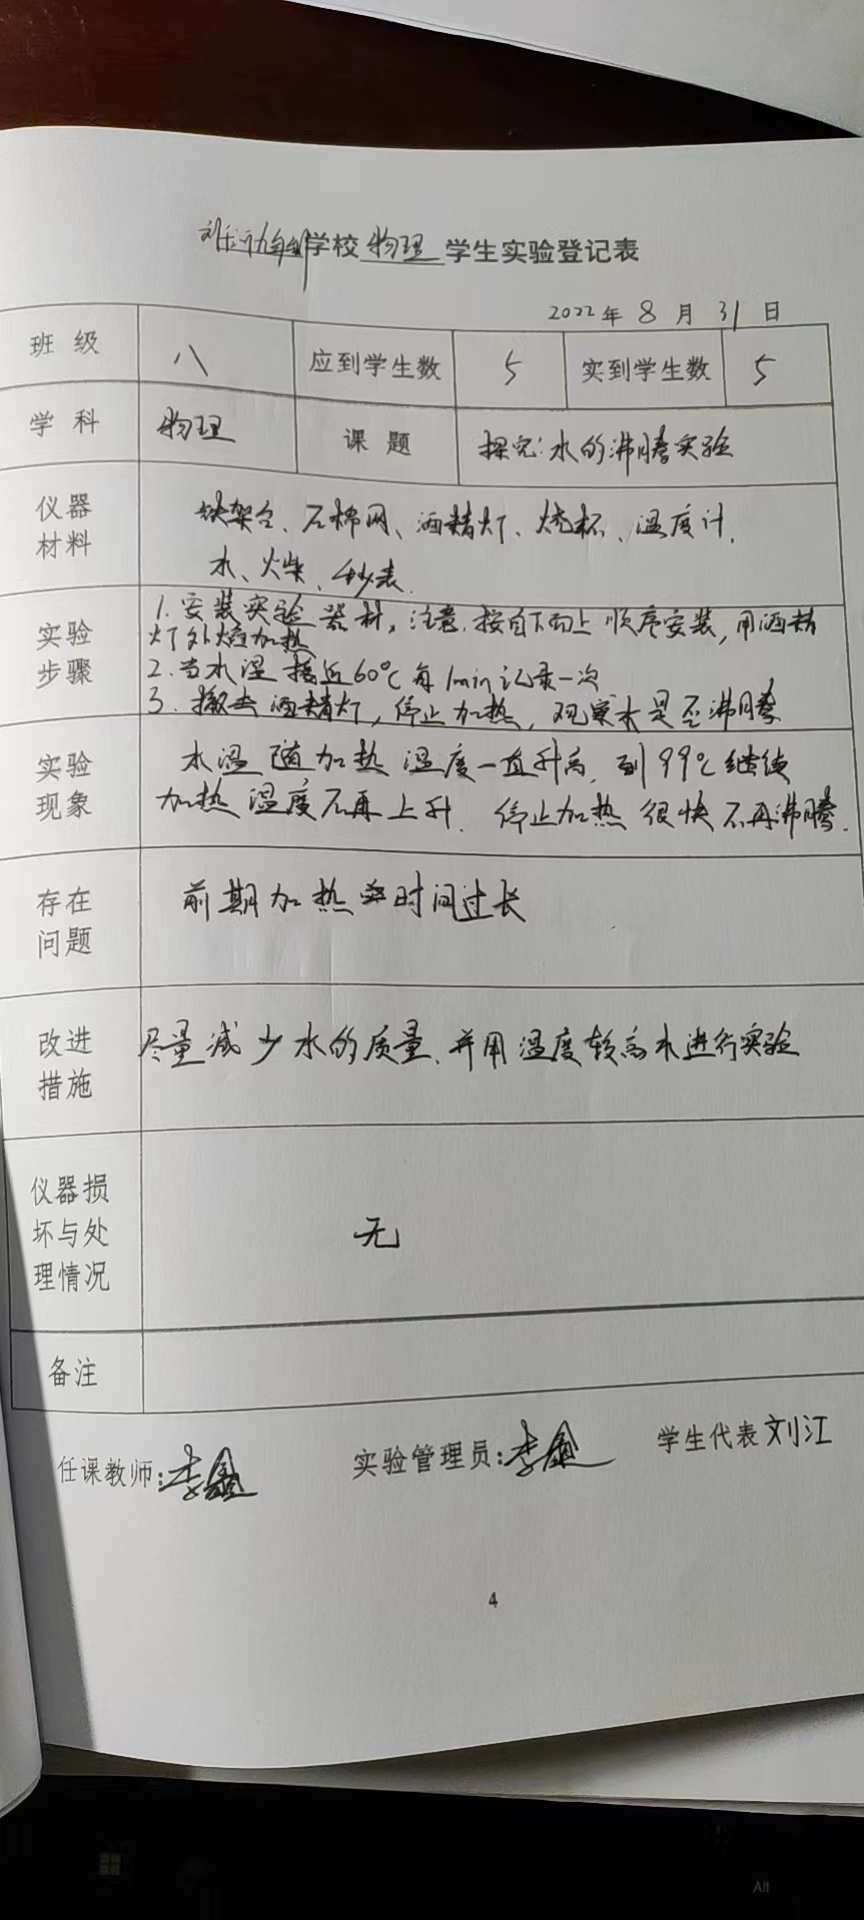 学校物理学生实验登记表
2022年8月31日
班级 八 应到学生数 5 实到学生数 5
学科 物理 课题 探究:水的沸腾实验
仪器材料
铁架台、石棉网、酒精灯、烧杯、温度计.
水、火柴、秒表.
实验步骤
1.安装实验器材,注意.按自下而上顺序安装,用酒精
灯外焰加热
2.当水温接近60℃每1min记录一次
3.撤去酒精灯,停止加热,观察水是否沸腾
实验现象
水温随加热温度一直升高,到99℃继续
加热温度不再上升.停止加热很快不再沸腾.
存在问题
前期加热时间过长
改进措施
尽量减少水的质量,并用温度较高水进行实验
仪器损坏与处理情况
无
备注
任课教师:李鑫 实验管理员:李鑫 学生代表 刘江
4
All